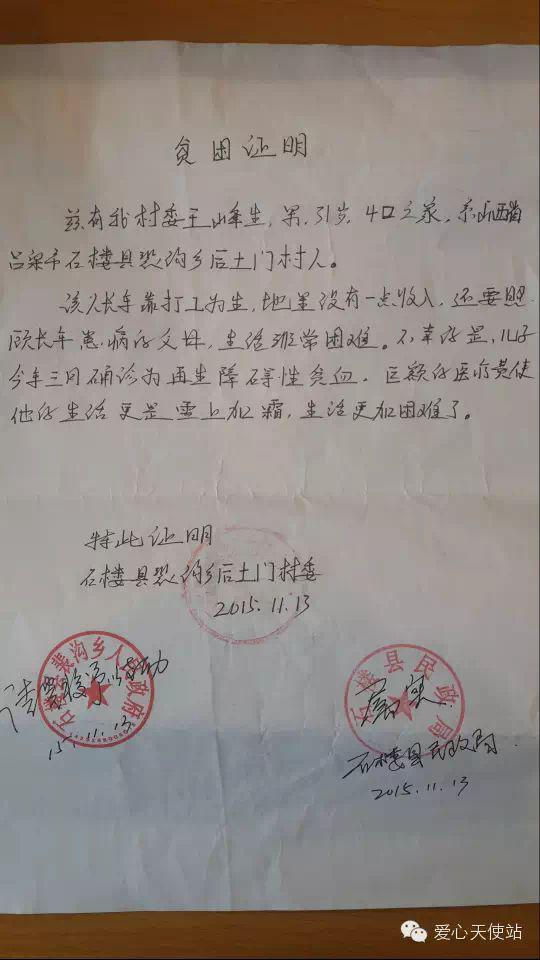 贫困证明
兹有我村委王峰生,男,31岁,4口之家,系山西省
吕梁市石楼县裴沟乡后土门村人。
该人长年靠打工为生,地里没有一点收入,还要照
顾长年患病的父母,生活非常困难。不幸的是,儿子
今年三月确诊为再生障碍性贫血,巨额的医疗费使
他的生活更是雪上加霜,生活更加困难了。
特此证明
石楼县裴沟乡后土门村委
2015.11.13
石楼县裴沟乡人民政府
请给予
15.11.13
石楼县民政局
属实
石楼县民政局
2015.11.13
爱心天使站